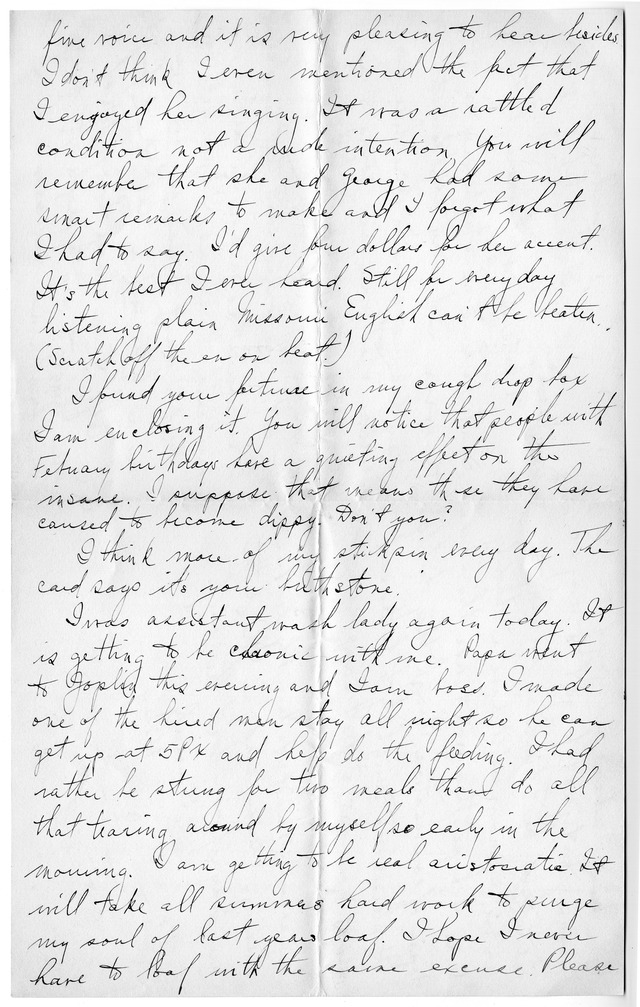 fine voice and it is very pleasing to hear besides
I don't think I even mentioned the fact that
I engoyed her singing. It was a rattled
condition not a rude intention You will
remember that she and George had some
smart remarks to make and I forgot what
I had to say. I'd give four dollars for her accent.
It's the best I ever heard. Still for everyday
listening plain Missouri English can't be beaten.
(Scratch off the en on beat.)
I found your fortune in my cough drop box
I am enclosing it. You will notice that people with
Febuary birthdays have a quieting effect on the
insane. I suppose that means those they have
caused to become dippy. Don't you?
I think more of my stickpin every day. The
card says it's your birthstone.
I was assistant wash lady again today. It
is getting to be chronic with me. Papa went
to Joplin this evening and I am boss. I made
one of the hired men stay all night so he can
get up at 5 and help do the feeding. I had
rather be stung for two meals than do all
that tearing around by myself so early in the
morning. I am getting to be real aristocratic. It
will take all summers hard work to purge
my soul of last years loaf. I hope I never
have to loaf with the same excuse. Please